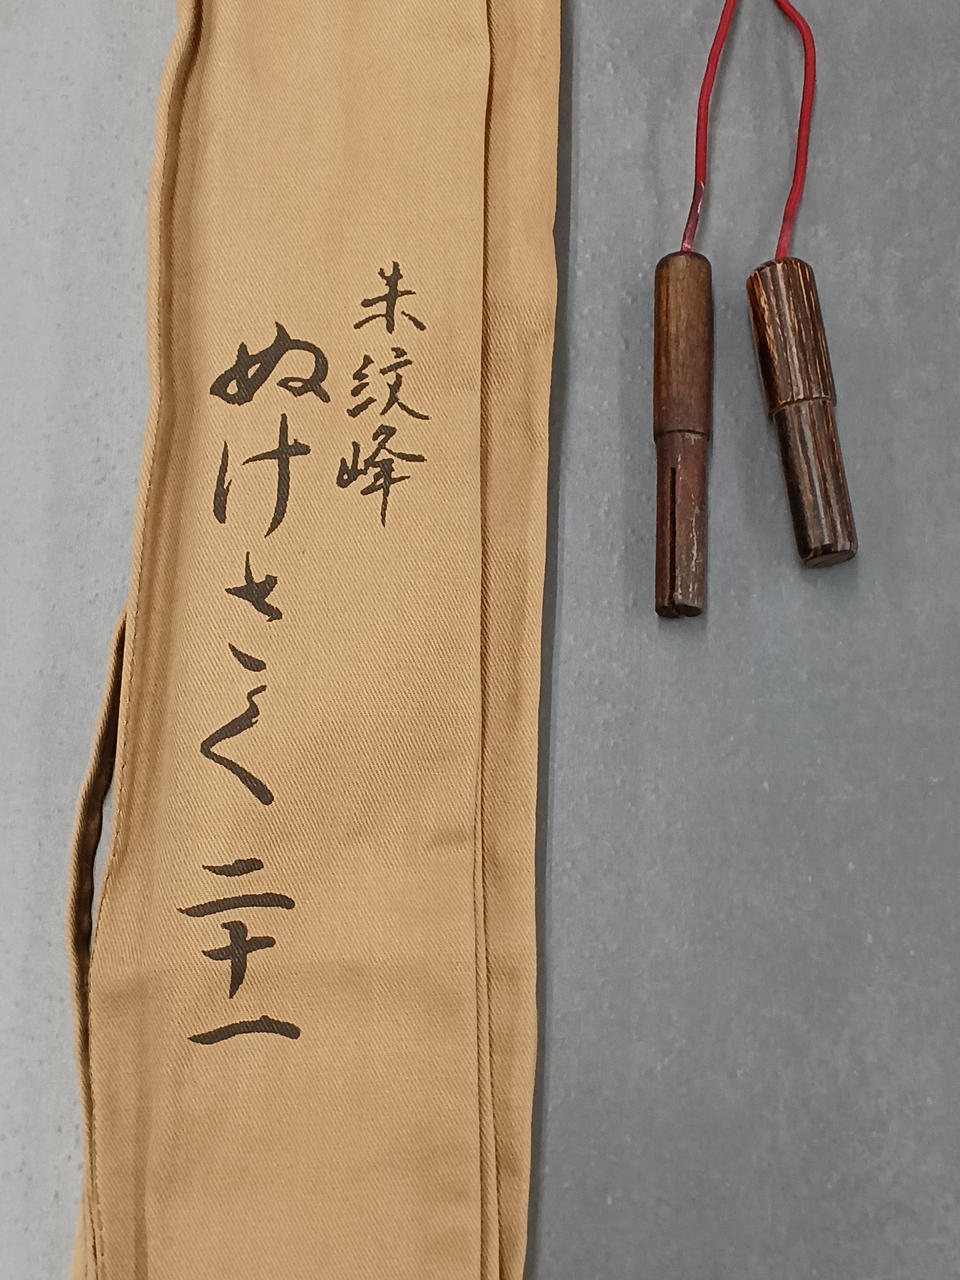 朱紋峰
ぬけさく二十一